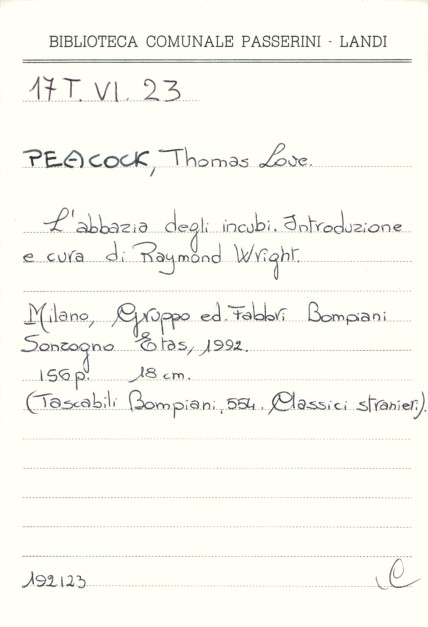 BIBLIOTECA COMUNALE PASSERINI - LANDI
17 T. VI. 23
PEACOCK, Thomas Love.
L'abbazia degli incubi. Introduzione
e cura di Raymond Wright.
Milano, Gruppo ed. Fabbri Bompiani
Sonzogno Etas, 1992.
156 p. 18 cm.
(Tascabili Bompiani, 554. Classici stranieri).
192123